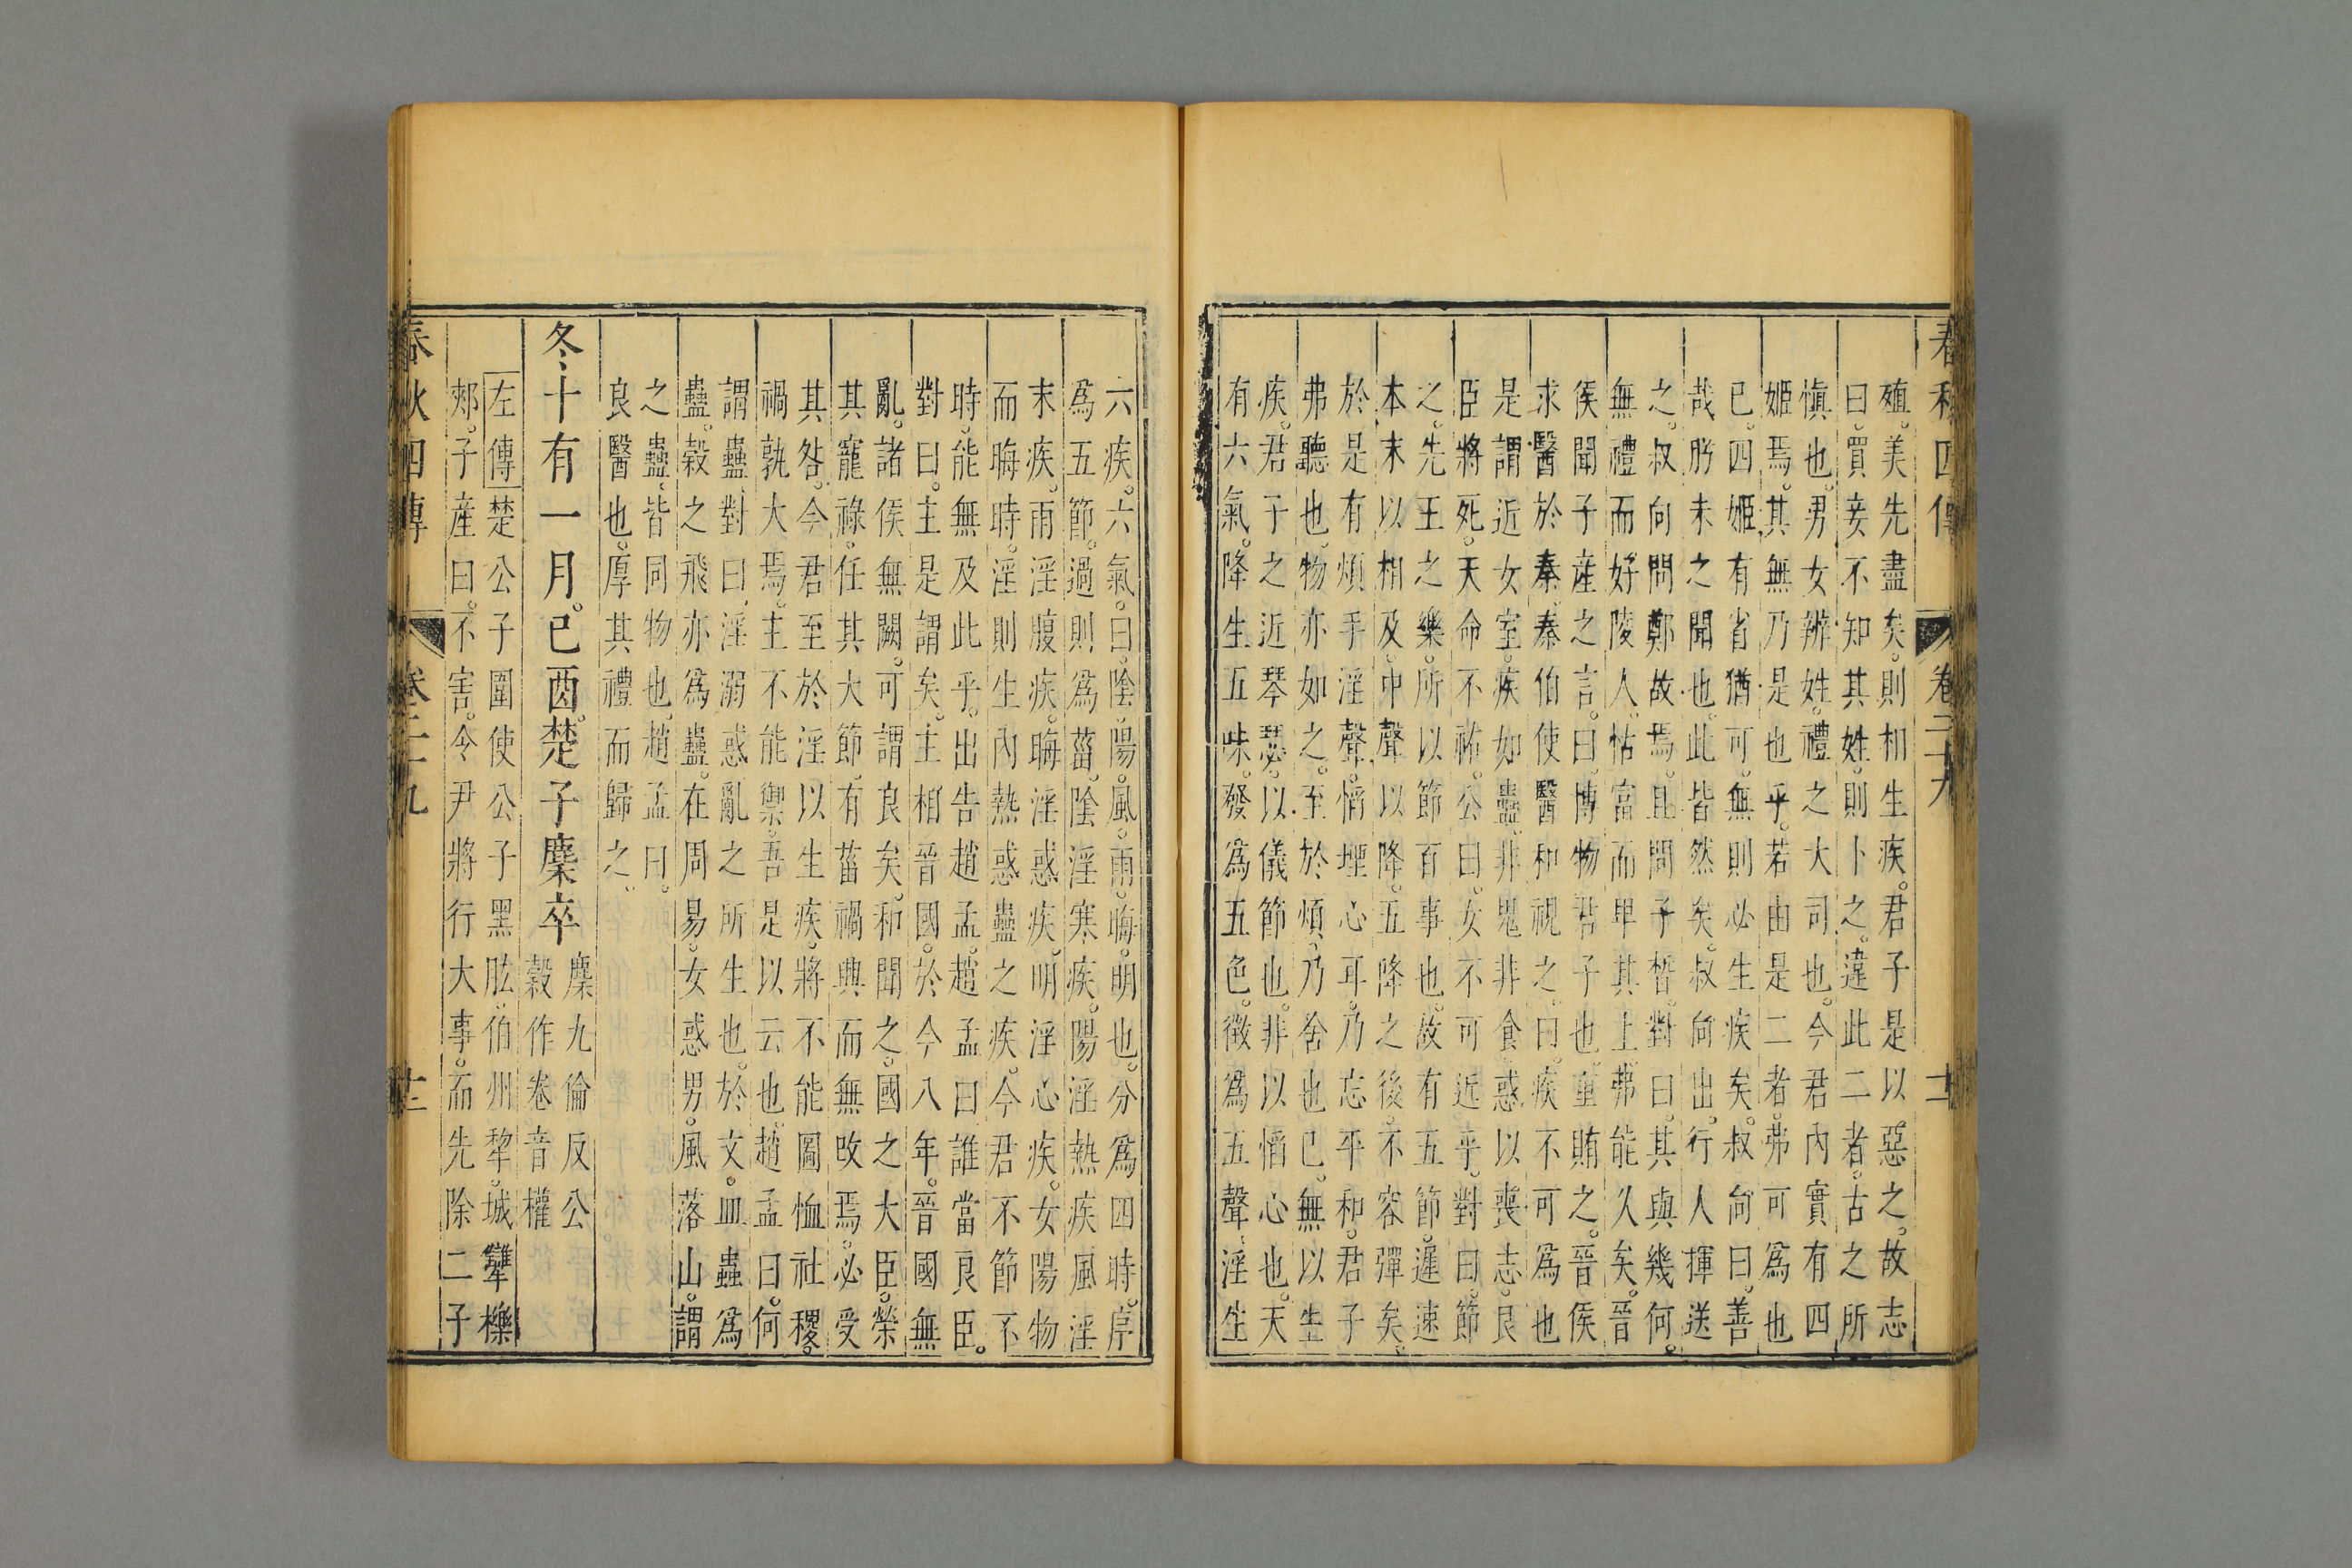 春秋四傳 卷二十九 十一
殖。美先盡矣。則相生疾。君子是以惡之。故志
曰。買妾不知其姓。則卜之。違此二者。古之所
慎也。男女辨姓。禮之大司也。今君內實有四
姬焉。其無乃是也乎。若由是二者。弗可為也
已。四姬有省猶可。無則必生疾矣。叔向曰。善
哉。肸未之聞也。此皆然矣。叔向出。行人揮送
之。叔向問鄭故焉。且問子晳。對曰。其與幾何。
無禮而好陵人。怙富而卑其上。弗能久矣。晉
侯聞子產之言。曰。博物君子也。重賄之。晉侯
求醫於秦。秦伯使醫和視之。曰。疾不可為也
是謂近女室。疾如蠱。非鬼非食。惑以喪志。良
臣將死。天命不祐。公曰。女不可近乎。對曰。節
之。先王之樂。所以節百事也。故有五節。遲速
本末以相及。中聲以降。五降之後。不容彈矣。
於是有煩手淫聲。慆堙心耳。乃忘平和。君子
弗聽也。物亦如之。至於煩。乃舍也已。無以生
疾。君子之近琴瑟。以儀節也。非以慆心也。天
有六氣。降生五味。發為五色。徵為五聲。淫生
六疾。六氣。曰。陰。陽。風。雨。晦。明也。分為四時。序
為五節。過則為菑。陰淫寒疾。陽淫熱疾。風淫
末疾。雨淫腹疾。晦淫惑疾。明淫心疾。女陽物
而晦時。淫則生內熱惑蠱之疾。今君不節不
時。能無及此乎。出告趙孟。趙孟曰。誰當良臣。
對曰。主是謂矣。主相晉國。於今八年。晉國無
亂。諸侯無闕。可謂良矣。和聞之。國之大臣。榮
其寵祿。任其大節。有菑禍興而無改焉。必受
其咎。今君至於淫以生疾。將不能圖恤社稷。
禍孰大焉。主不能禦。吾是以云也。趙孟曰。何
謂蠱。對曰。淫溺惑亂之所生也。於文。皿蟲為
蠱。穀之飛亦為蠱。在周易。女惑男。風落山。謂
之蠱。皆同物也。趙孟曰。
良醫也。厚其禮而歸之。
冬十有一月。己酉。楚子麇卒 麇九倫反公
穀作卷音權
左傳 楚公子圍使公子黑肱。伯州犂。城犨櫟
郟。子產曰。不害。令尹將行大事。而先除二子
春秋四傳 卷二十九 十二